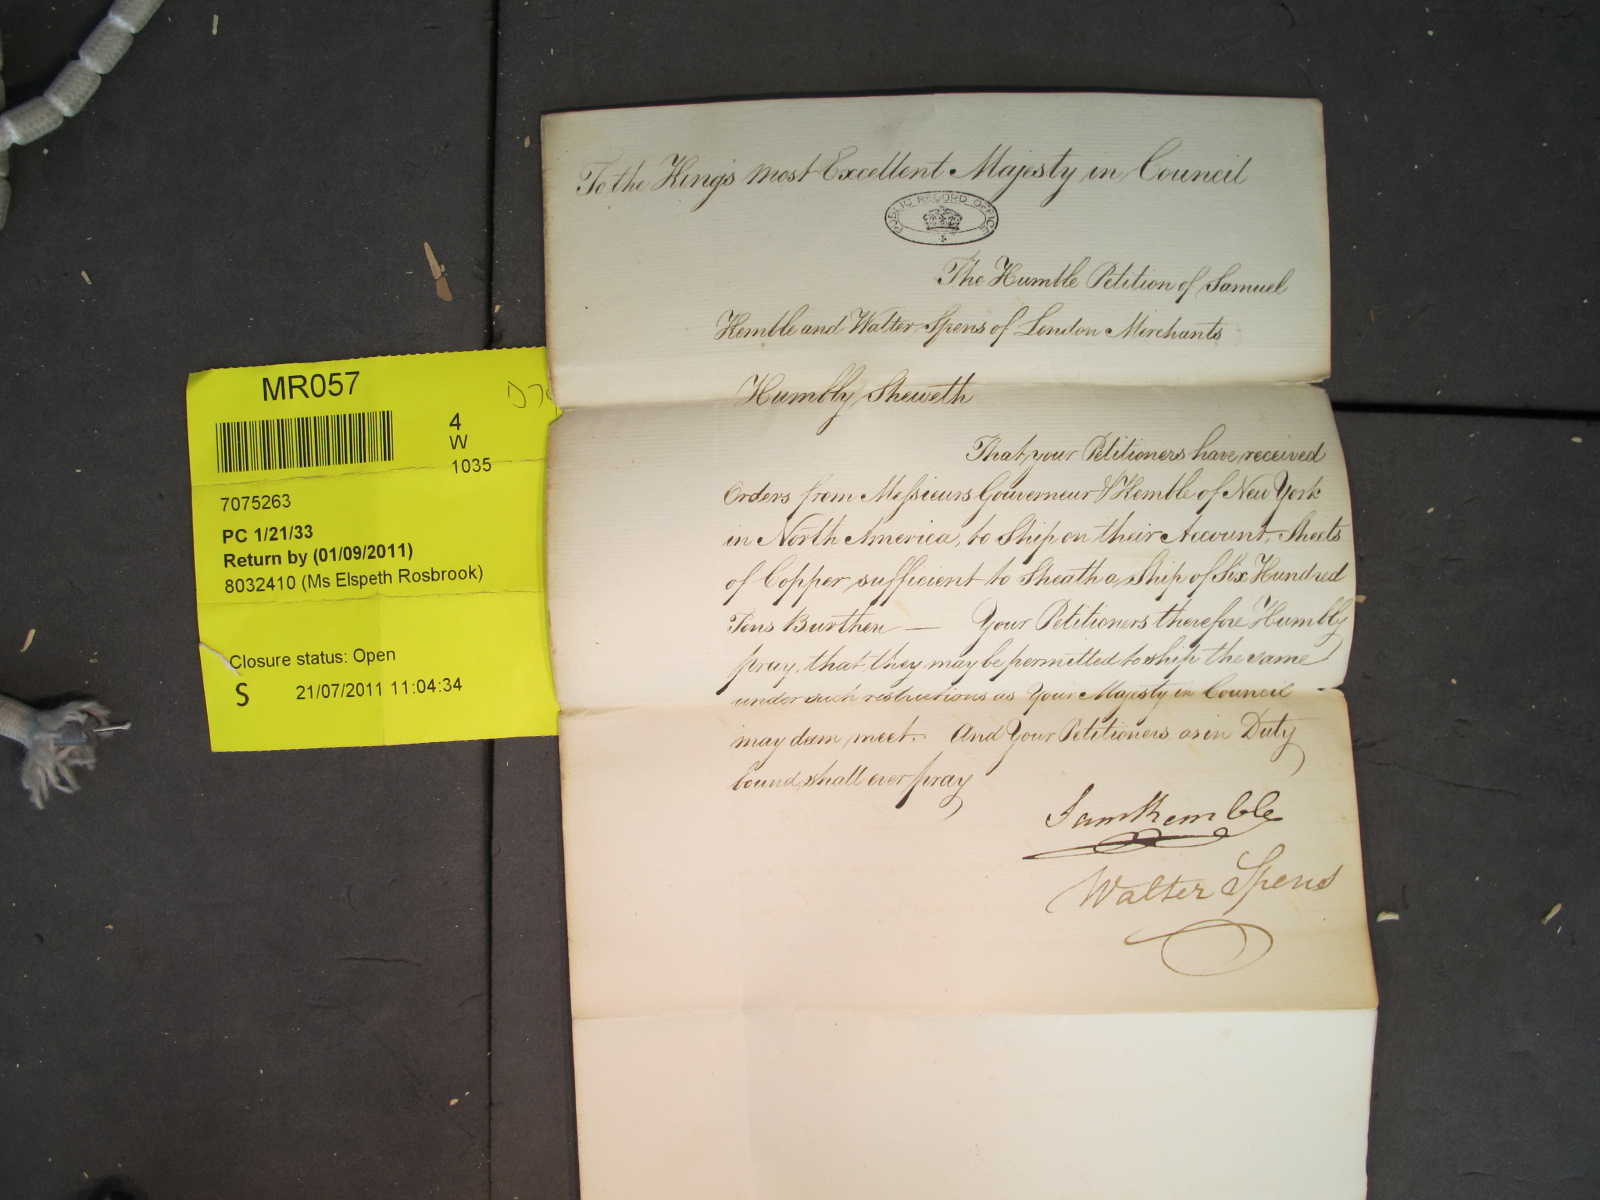 To the King's most Excellent Majesty in Council
PUBLIC RECORD OFFICE
The Humble Petition of Samuel
Kemble and Walter Spens of London Merchants
Humbly Sheweth
That your Petitioners have received
Orders from Messieurs Gouverneur & Kemble of New York
in North America, to Ship on their Account, Sheets
of Copper sufficient to Sheath a Ship of Six Hundred
Tons Burthen — Your Petitioners therefore Humbly
pray, that they may be permitted to ship the same
under such restrictions as Your Majesty in Council
may deem meet. And Your Petitioners as in Duty
bound shall ever pray
Sam Kemble
Walter Spens
MR057
4
W
1035
7075263
PC 1/21/33
Return by (01/09/2011)
8032410 (Ms Elspeth Rosbrook)
Closure status: Open
S 21/07/2011 11:04:34